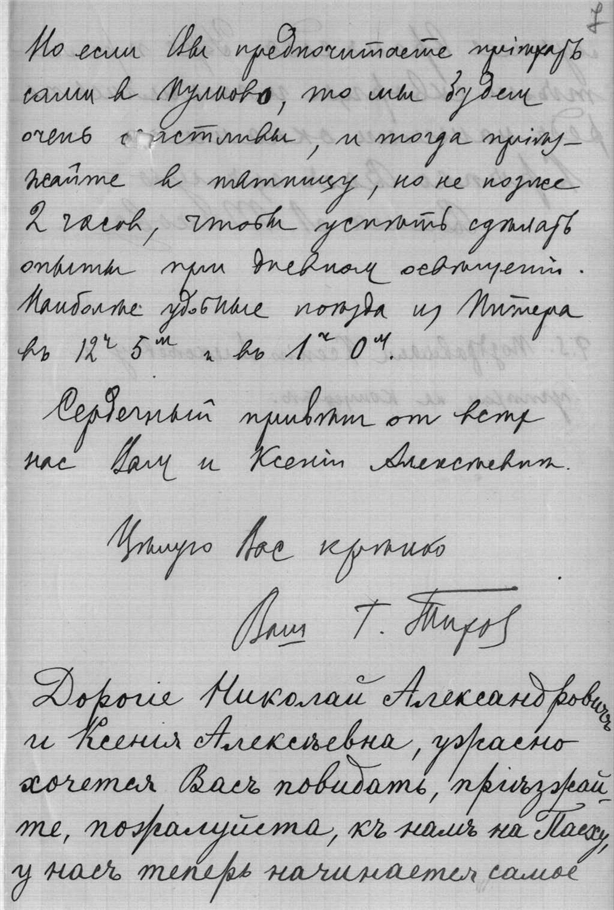 Но если Вы предпочитаете пріѣхать
сами в Пулково, то мы будем
очень счастливы, и тогда пріѣз-
жайте в пятницу, но не позже
2 часов, чтобы успѣть сдѣлать
опыты при дневном освѣщеніи.
Наиболѣе удобные поѣзда из Питера
въ 12ч 5м и въ 1ч 0м.
Сердечный привѣт от всѣх
нас Вам и Ксеніи Алексѣевнѣ.
Цѣлую Вас крѣпко
Ваш Г. Тихов
Дорогіе Николай Александровичъ
и Ксенія Алексѣевна, ужасно
хочется Васъ повидать, пріѣзжай-
те, пожалуйста, къ намъ на Пасху,
у насъ теперь начинается самое